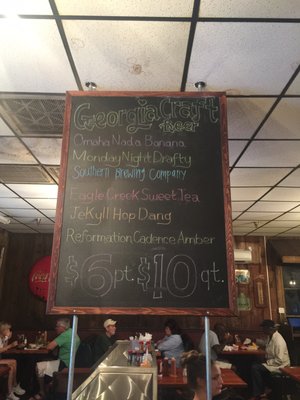 Georgia Craft
Beer
Omaha Nada Banana
Monday Night Drafty
Southern Brewing
Company
Eagle Creek Sweet Tea
Jekyll Hop Dang
Reformation Cadence Amber
$6 pt. $10 qt.